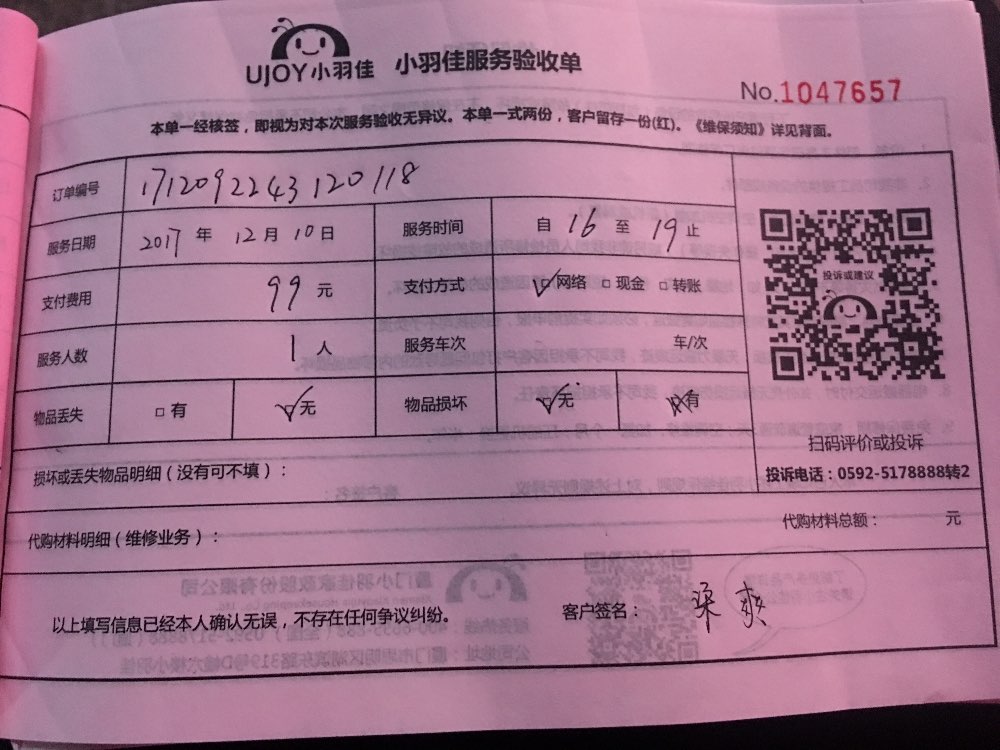 UJOY小羽佳 小羽佳服务验收单
No.1047657
本单一经核签，即视为对本次服务验收无异议。本单一式两份，客户留存一份(红)。《维保须知》详见背面。
订单编号 1712092243120118
服务日期 2017 年 12 月 10 日 服务时间 自 16 至 19 止
支付费用 99 元 支付方式 ☑网络 □现金 □转账
服务人数 1 人 服务车次 车/次
物品丢失 □有 ☑无 物品损坏 ☑无 有
投诉或建议
扫码评价或投诉
投诉电话：0592-5178888转2
损坏或丢失物品明细（没有可不填）：
代购材料明细（维修业务）： 代购材料总额： 元
以上填写信息已经本人确认无误，不存在任何争议纠纷。 客户签名： 梁爽